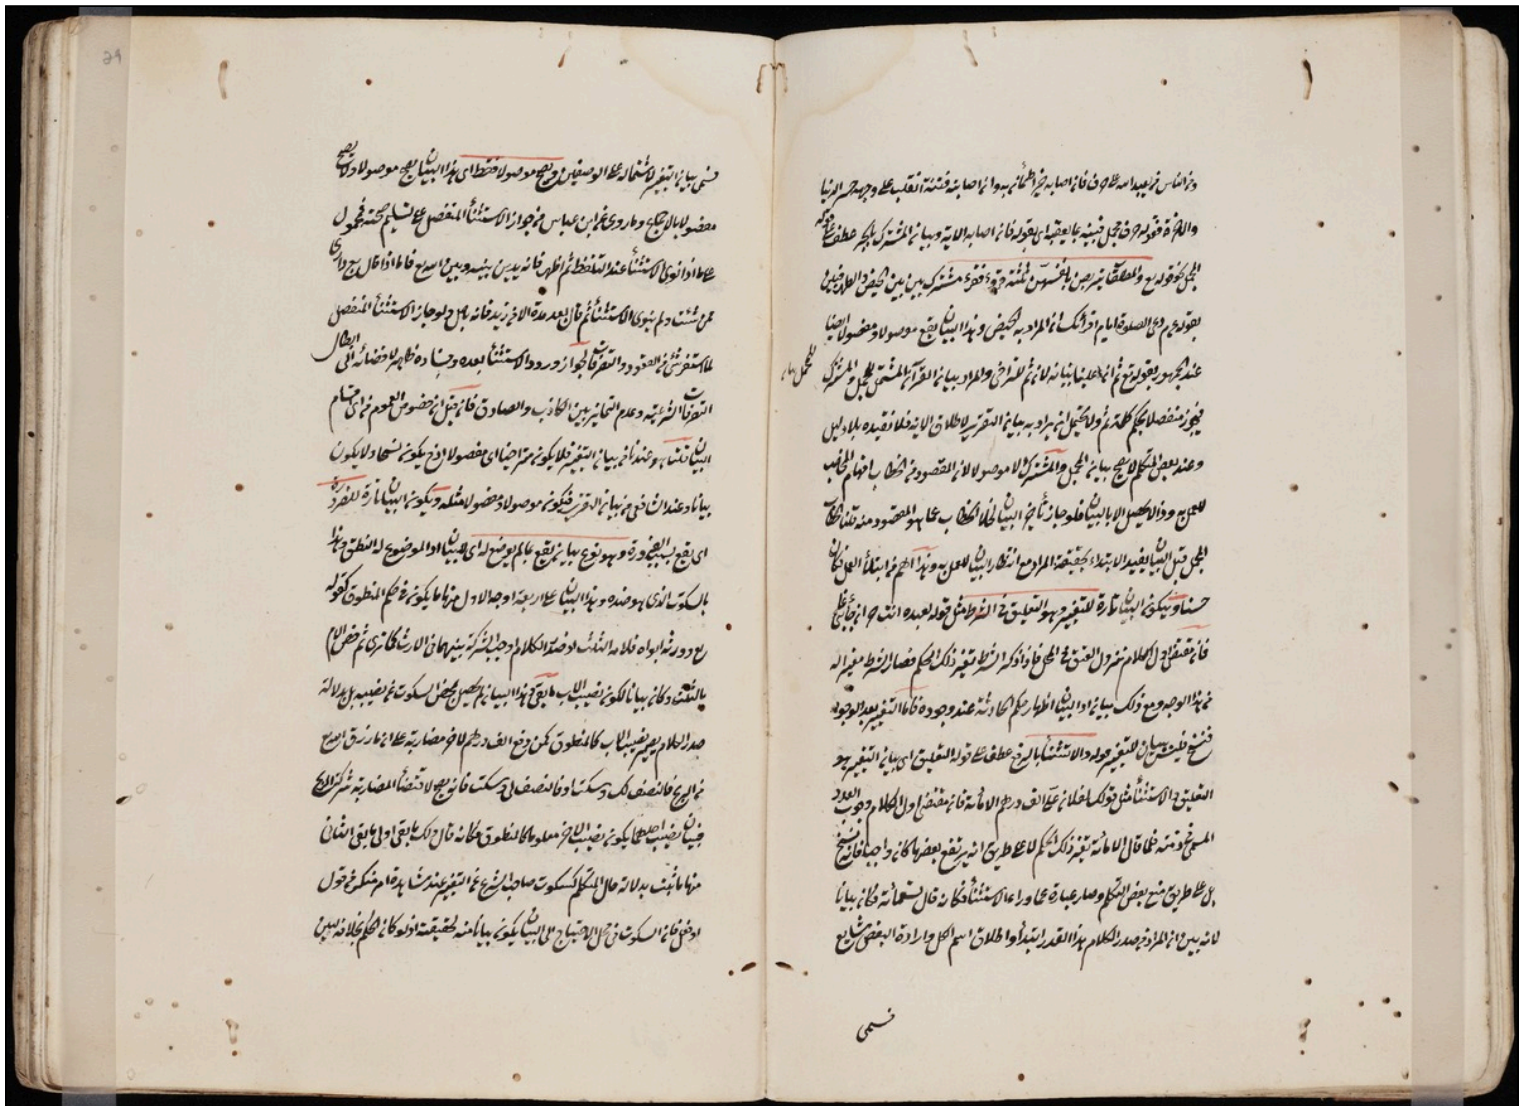 ومن الناس من يعبد الله على حرف فان اصابه خير اطمأن به وان اصابته فتنة انقلب على وجهه خسر الدنيا
والاخرة فقوله حرف مجمل فبينه بما يعقبه اى بقوله فان اصابه الاية وبيان المشترك بالجر عطف على قوله
المجمل كقوله تع والمطلقات يتربصن بانفسهن ثلثة قروء فقروء مشترك بين الحيض والطهر فبين
بقوله عم دعى الصلوة ايام اقرائك ان المراد به الحيض وهذا البيان يقع موصولا ومفصولا ايضا
عند الجمهور لقوله تع ثم ان علينا بيانه لان ثم للتراخى والمراد بيان القرآن المشتمل للمجمل والمشترك
فيجوز منفصلا بحكم كلمة ثم ولا يحتمل ان يراد به بيان التقرير لاطلاق الاية فلا نقيده بلا دليل
وعند بعض المتكلم لا يصح بيان المجمل والمشترك الا موصولا لان المقصود من الخطاب افهام المخاطب
للعمل به وذا لا يحصل الا بالبيان فلو جاز تأخير البيان لخلا الخطاب عما هو المقصود منه قلنا خطاب
المجمل قبل البيان يفيد الابتداء بحقيقة المراد مع انتظار البيان للعمل به وهذا اهم من ابتداء العمل فكان
حسنا ويكون البيان تارة للتغيير وهو التعليق فى الشرط مثل قوله لعبده انت حر ان
فان مقتضى اول الكلام نزول العتق فى المحل فاذا ذكر الشرط تغير ذلك الحكم فصار الشرط مغيرا له
من هذا الوجه ومع ذلك بيان اذ البيان اظهار حكم الحادثة عند وجوده فاما التغيير بعد الوجود
فنسخ فليس ببيان للتغيير قوله والاستثناء بالرفع عطف على قوله التعليق اى بيان التغيير هو
التعليق والاستثناء مثل قولك لفلان على الف درهم الا مأئة فان مقتضى اول الكلام وجوب العدد
المسمى فى ذمته فلما قال الا مأئة تغير ذلك الحكم لا على طريق انه يرتفع بعض ما كان واجبا فانه نسخ
بل على طريق منع بعض التكلم وصار عبارة عما وراء الاستثناء فكانه قال تسعمأئة فكان بيانا
لانه بين ان المراد من صدر الكلام هذا القدر ابتداء واطلاق اسم الكل وارادة البعض شايع
فسمى
فسمى بيان التغيير لاشتماله على الوصفين ويصح موصولا فقط اى هذا البيان يصح موصولا ولا يصح
مفصولا بالاجماع وما روى عن ابن عباس من جواز الاستثناء المنفصل على تسليم صحته محمول
على ما اذا نوى الاستثناء عند التلفظ ثم اظهر فانه يدين بينه وبين الله تع فاما اذا قال
ممن شئت ولم ينوى الاستثناء ثم قال بعد مدة الا من زيد فانه باطل ولو جاز الاستثناء المنفصل
لما استقر شئ من العقود والتصرفات لجواز ورود الاستثناء بعده وفساده ظاهر لافضائه الى ابطال
التصرفات الشرعية وعدم التمايز بين الكاذب والصادق فان قيل ان خصوص العموم من اى قسام
البيان قلنا هو عندنا من بيان التغيير فلا يكون متراخيا اى مفصولا اذ ح يكون نسخا ولا يكون
بيانا وعند الشافعى من بيان التقرير فيكون موصولا ومفصولا مثله ويكون البيان تارة للضرورة
اى يقع بسبب الضرورة وهو نوع بيان يقع بما لم يوضع له اى للبيان اذ الموضوع له النطق وهذا
بالسكوت الذى هو ضده وهذا البيان على اربعة اوجه الاول منها ما يكون فى حكم المنطوق كقوله
تع وورثه ابواه فلامه الثلث اوصدر الكلام اوجب الشركة بينهما فى الارث كما ترى ثم خص الام
بالثلث وكان بيانا لكون نصيب الاب ما بقى وهذا البيان لم يحصل بمحض السكوت عن نصيبه بل بدلالة
صدر الكلام يصير نصيب الاب كالمنطوق كمن دفع الف درهم لاخر مضاربة على ان ما رزق الله تع
من الربح فالنصف لك وسكت او فالنصف لى وسكت فانه يصح لاقتضاء المضاربة شركة الربح
فبيان نصيب احدهما يكون نصيب الاخر معلوما كالمنطوق فكانه قال ولك ما بقى او لى ما بقى الثانى
منها ما ثبت بدلالة حال المتكلم كسكوت صاحب الشرع عن التغيير عند مشاهدة امر منكر من قول
او فعل فان السكوت فى محل الاحتياج الى البيان يكون بيانا منه لحقيقته اذ لو كان الحكم بخلافه لبين